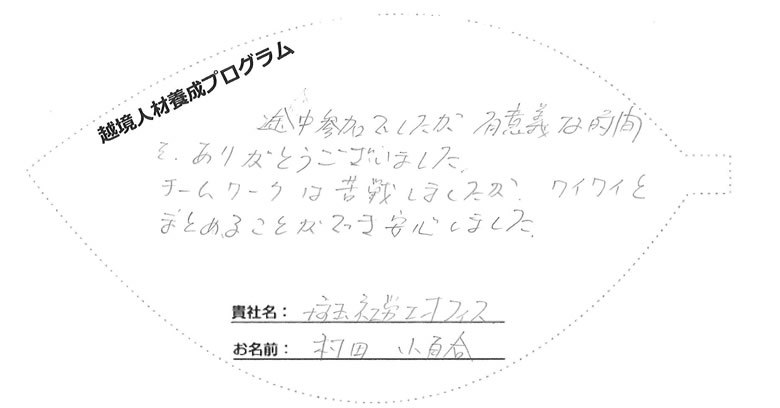 越境人材養成プログラム
途中参加でしたが 有意義な時間
を、ありがとうございました。
チームワークは苦戦しましたが、ワイワイと
まとめることができ安心しました。
貴社名: 埼玉社労士オフィス
お名前: 村田 小百合